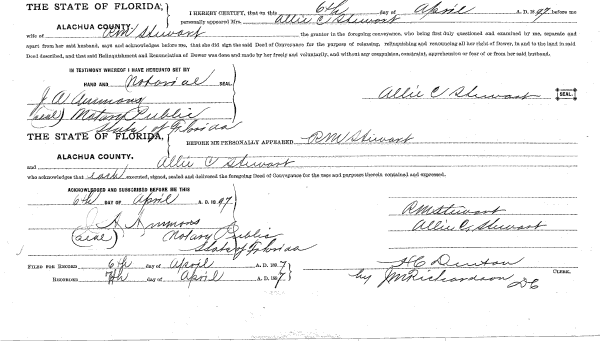 THE STATE OF FLORIDA, I HEREBY CERTIFY, that on this 6th day of April A. D. 1897 before me
ALACHUA COUNTY. personally appeared Mrs. Allie C Stewart
wife of R M Stewart the grantor in the foregoing conveyance, who being first duly questioned and examined by me, separate and
apart from her said husband, says and acknowledges before me, that she did sign the said Deed of Conveyance for the purpose of releasing, relinquishing and renouncing all her right of Dower, in and to the land in said
Deed described, and that said Relinquishment and Renunciation of Dower was done and made by her freely and voluntarily, and without any compulsion, constraint, apprehension or fear of or from her said husband.
IN TESTIMONY WHEREOF I HAVE HEREUNTO SET BY
HAND AND Notarial SEAL.
J A Ammons Allie C Stewart SEAL.
(seal) Notary Public
State of Florida
THE STATE OF FLORIDA, BEFORE ME PERSONALLY APPEARED R M Stewart
ALACHUA COUNTY.
and Allie C Stewart
who acknowledges that each executed, signed, sealed and delivered the foregoing Deed of Conveyance for the uses and purposes therein contained and expressed.
ACKNOWLEDGED AND SUBSCRIBED BEFORE ME THIS
6th DAY OF April A. D. 1897
J A Ammons R M Stewart
(seal) Notary Public Allie C Stewart
State of Florida
FILED FOR RECORD 6th day of April A. D. 1897 H C Denton CLERK.
RECORDED 7th day of April A. D. 1897 by J M Richardson D C